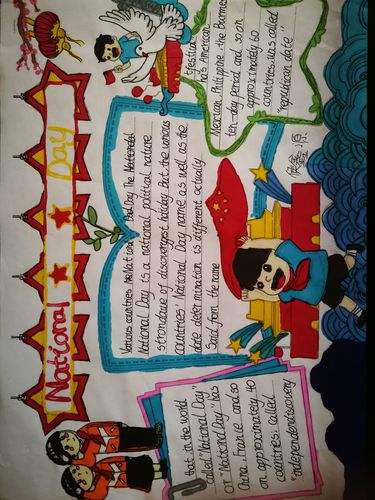 National Day
Various countries the National Day. The National
National Day is a national political nature
strondave of discoveryest holiday But the various
countries' National Day name as well as the
note determination is different actually.
Said from the name
that in the world
called "National Day"
or "National Day" has
China. France and so
on approximately 40
countries, called
"independendiscovery
festival
has American
Mexican Philippine the Burmese
ten-day period and so on
approximately 60
countries, was called
"republican date"